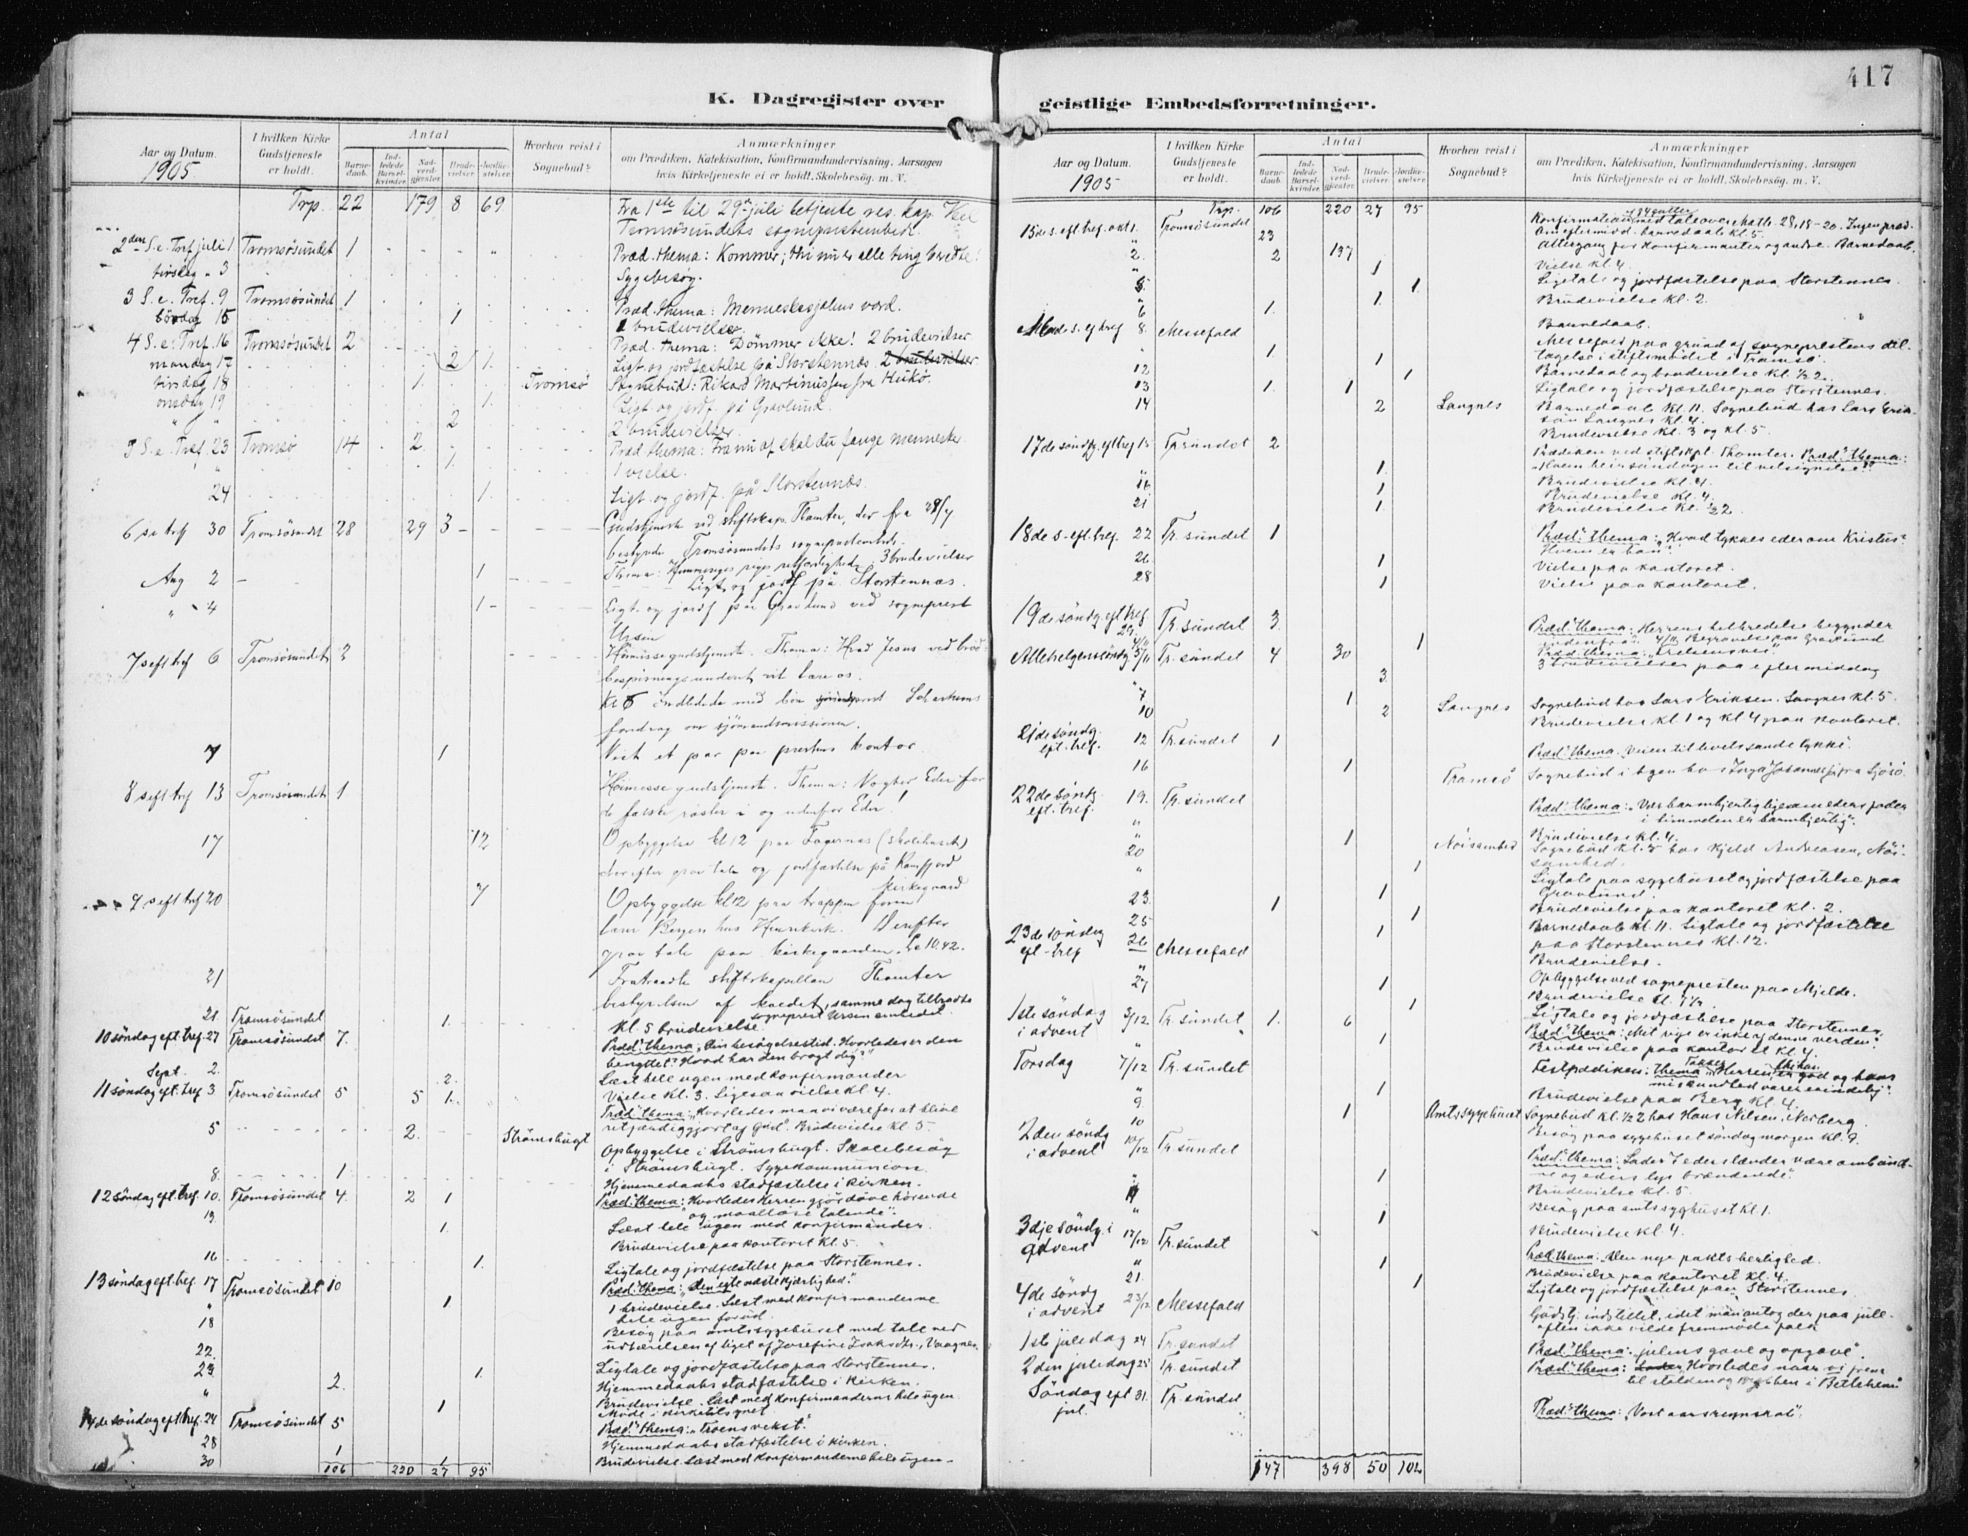 417
K. Dagregister over
geistlige Embedsforretninger.
Aar og Datum. 1905
I hvilken Kirke Gudstjeneste er holdt.
Antal
Barnedaab. Indledede Barselkvinder. Nadverdgjester. Brudevielser. Jordfæstelser.
Hvorhen reist i Sognebud?
Anmærkninger
om Prædiken, Katekisation, Konfirmandundervisning, Aarsagen
hvis Kirketjeneste ei er holdt, Skolebesøg. m. V.
Trp. 22 179 8 69 Fra 1ste til 29de juli betjente res. kap.
Tromsøsundets sogneprestembed.
2den S. e. Tref. juli Tromsøsundet 1 Præd. thema: Kommer; thi nu er alle ting beredte!
tirsdag 3 Sygebesøg.
3 S. e. Tref. 9 Tromsøsundet 1 Præd. thema: Menneskesjælens værd.
15 1 1 brudevielse.
4 S. e. Tref. 16 Tromsøsundet 2 Præd. thema: Dømmer ikke! 2 brudevielser
mandag 17 2 1. Ligt. og jordfæstelse på Storstennes. 2 brudevielser
tirsdag 18 1. Tromsø Sognebud: Rikard Martinussen fra
onsdag 19 1. Ligt. og jordf. på Gravlund.
" " 2 2 brudevielser.
5 S. e. Tref. 23 Tromsø 14 2. Præd. thema: Fra nu af skal du fange mennesker.
1. 1 vielse.
24 1. Ligt. og jordf. på Storstennes.
6 se tref 30 Tromsøsundet 28 29 3 Gudstjeneste ved stiftskap. Thomter, der fra 28/7
bestyrede Tromsøsundets sogneprestembede.
Thema: 3 brudevielser
Aug 2 1 Ligt. og jordf på Storstennes.
" 4 1 Ligt. og jordf paa Gravlund ved sogneprest
Ursin
7 s eft tref 6 Tromsøsundet 2 Høimessegudstjeneste. Thema: Hvad Jesus ved brød-
bespisningsunderet vil lære os.
Kl 6 indledede med bøn
foredrag om sjømandsmissionen.
7 1 Viet et par paa prestens kontor.
8 s eft tref 13 Tromsøsundet 1 Høimessegudstjeneste. Thema: Vogter Eder for
de falske røster i og udenfor Eder!
17 12 Opbyggelse kl 12 paa Fagernes (skolehuset)
derefter grav tale og jordfæstelse på Ramfjord
kirkegaard
9 s eft tref 20 7 Opbyggelse kl 12 paa trappen foran
Derefter
grav tale paa kirkegaarden.
21 Fratraadte stiftskapellan Thomter
bestyrelsen af kaldet, samme dag tiltraadte
sogneprest Ursin embedet.
21. Tromsøsundet 1. Kl. 5 brudevielse
10 søndag eft. tref. 27 Tromsøsundet 7. Præd. thema: "Din besøgelsestid. Hvorledes er den
benyttet? Hvad har den bragt dig?"
Sept. 2. 2. Læst hele ugen med konfirmander
Vielse kl. 3. Ligesaa vielse kl. 4.
11 søndag eft. tref 3 Tromsøsundet 5 5 1. Præd. thema: "Hvorledes maa vi være for at blive
retfærdiggjort af Gud". Brudevielse kl. 5.
5 2. Strømsbugt Opbyggelse i Strømsbugt. Skolebesøg
i Strømsbugt. Sygekommunion.
8. 1. Hjemmedaabs stadfæstelse i kirken.
12 søndag eft. tref. 10. Tromsøsundet 4. 2 1 Præd. thema: "Hvorledes Herren gjør døve hørende
og maalløse talende".
13. 1. Læst hele ugen med konfirmander.
Brudevielse paa kontoret kl. 5.
16 1. Ligtale og jordfæstelse paa Storstennes.
13 søndag eft. tref. 17 Tromsøsundet 10 Præd. thema: "Den egte næstekjærlighed."
" 1 1 brudevielse. Læst med konfirmanderne
hele ugen forud.
18 Besøg paa amtssygehuset med tale ved
udbærelsen af liget af Josefine
22. Ligtale og jordfæstelse paa Storstennes.
23. 2. 1. Hjemmedaabs stadfæstelse i kirken.
" 1 Brudevielse. Læst med konfirmanderne hele ugen.
14de søndag eft. tref. 24 Tromsøsundet 5 Præd. thema: "Troens vekst."
28 1 Hjemmedaabs stadfæstelse i kirken.
30 1 Brudevielse. Læst med konfirmanderne hele ugen.
106 220 27 95
Aar og Datum. 1905
I hvilken Kirke Gudstjeneste er holdt.
Antal
Barnedaab. Indledede Barselkvinder. Nadverdgjester. Brudevielser. Jordfæstelser.
Hvorhen reist i Sognebud?
Anmærkninger
om Prædiken, Katekisation, Konfirmandundervisning, Aarsagen
hvis Kirketjeneste ei er holdt, Skolebesøg. m. V.
Trp. 106 220 27 95
15de s. eft. tref. okt 1. Tromsøsundet 23 Konfirmation med tale over Matth. 28, 18-20. Ingen præd.
Om eftermid. barnedaab kl. 5.
2. 2 137 Altergang for konfirmanter og andre. Barnedaab.
" 1 Vielse kl. 4.
5. 1. Ligtale og jordfæstelse paa Storstennes.
" 1. Brudevielse kl. 2.
6 1. Barnedaab.
16de s. ef tref 8. Messefald Messefald paa grund af sogneprestens del-
tagelse i stiftsmødet i Tromsø.
" 1. 1 Barnedaab og brudevielse kl. 1/2 2.
12 1 Ligtale og jordfæstelse paa Storstennes.
13 1. 1 Langnes Barnedaab kl. 11. Sognebud hos Lars Erik-
sen Langnes kl. 4.
14 2 Brudevielse kl. 3 og kl. 5.
17de søndg. eft tref 15 Tr. sundet 2 Prædiken ved stiftskpl. Thomter. Præd. thema:
søndagen til velsignelse?"
" 1. Brudevielse kl. 4.
16 1 Brudevielse kl. 4.
21. 1. Brudevielse kl. 1/2 2.
18de s. eft. tref. 22 Tr. sundet 1 Præd. thema: "Hvad tykkes eder om Kristus?
Hvem er han?"
26. 1 Vielse paa kontoret.
28 1 Vielse paa kontoret.
19de søndg. eft tref 29. Tr. sundet 3. Præd. thema: Herrens helbredelse begynder
indenfra". 4/11 Begravelse paa Gravlund
Allehelgenssøndg 5/11 Tr. sundet 4 30 1 Præd. thema: "Frelsens vei".
" 3. 3 brudevielser paa eftermiddag
7 1. Langnes Sognebud hos Lars Eriksen. Langnes kl. 5.
10 2 Brudevielse kl 1 og kl 4 paa kontoret.
21de søndg. eft. tref. 12 Tr. sundet 1 Præd. thema. Veien til livets sande lykke.
16 1 Tromsø Sognebud i byen hos
22de søndg. eft. tref. 19. Tr. sundet Præd. thema: "Vær barmhjertig ligesom eders fader
i himmelen er barmhjertig".
" Brudevielse kl. 4.
20 1 Sognebud kl. hos Kjeld Andreasen,
" 1 Ligtale paa sygehuset og jordfæstelse paa
Gravlund.
23. 1 Brudevielse paa kontoret kl. 2.
25 1 1 Barnedaab kl. 11. Ligtale og jordfæstelse
paa Storstennes kl. 12.
1 Brudevielse.
23de søndag eft. tref 26 Messefald Opbyggelse ved sognepresten paa Mjelde.
27 1 Brudevielse kl.
1 Ligtale og jordfæstelse paa Storstennes
1ste søndag i advent 3/12 Tr. sundet 1. 6 Præd. thema: "Mit rige er ikke af denne verden."
" 1 Brudevielse paa kontoret kl. 4.
Torsdag 7/12 Tr. sundet Festprædiken: thema: Takker Herren, thi han er god og hans
miskundhed varer evindelig".
" 1 Brudevielse paa Berg kl. 4.
9. 1 Amtssygehuset Sognebud kl. 1/2 2 hos Hans Nilsen,
10 Besøg paa sygehuset søndag morgen kl. 9.
2den søndg i advent 10/12 Tr. sundet Præd. thema: "Lader Eders lænder være ombund-
ne og eders lys brændende".
" 1 Brudevielse kl. 5.
Besøg paa amtssyghuset kl 1.
" 1 Brudevielse kl. 4.
3dje søndg. i advent 17/12 Tr. sundet Præd. thema: Den nye pakts herlighed.
" 1 Brudevielse paa kontoret kl. 4.
21. 1 Ligtale og jordfæstelse paa Storstennes.
4de søndg i advent 23/12 Messefald Gudstj. indstillet, idet man antog der paa jule-
aften ikke vilde fremmøde folk
1ste juledag 24 Tr. sundet Præd. thema: "Julens gave og opgave".
2den juledag 25 Tr. sundet Præd. thema: Hvorledes naar vi frem
til stalden og krybben i Betlehem
Søndag eft jul. 31. Tr. sundet Præd. thema: "Vort aarsregnskab".
147 398 50 102